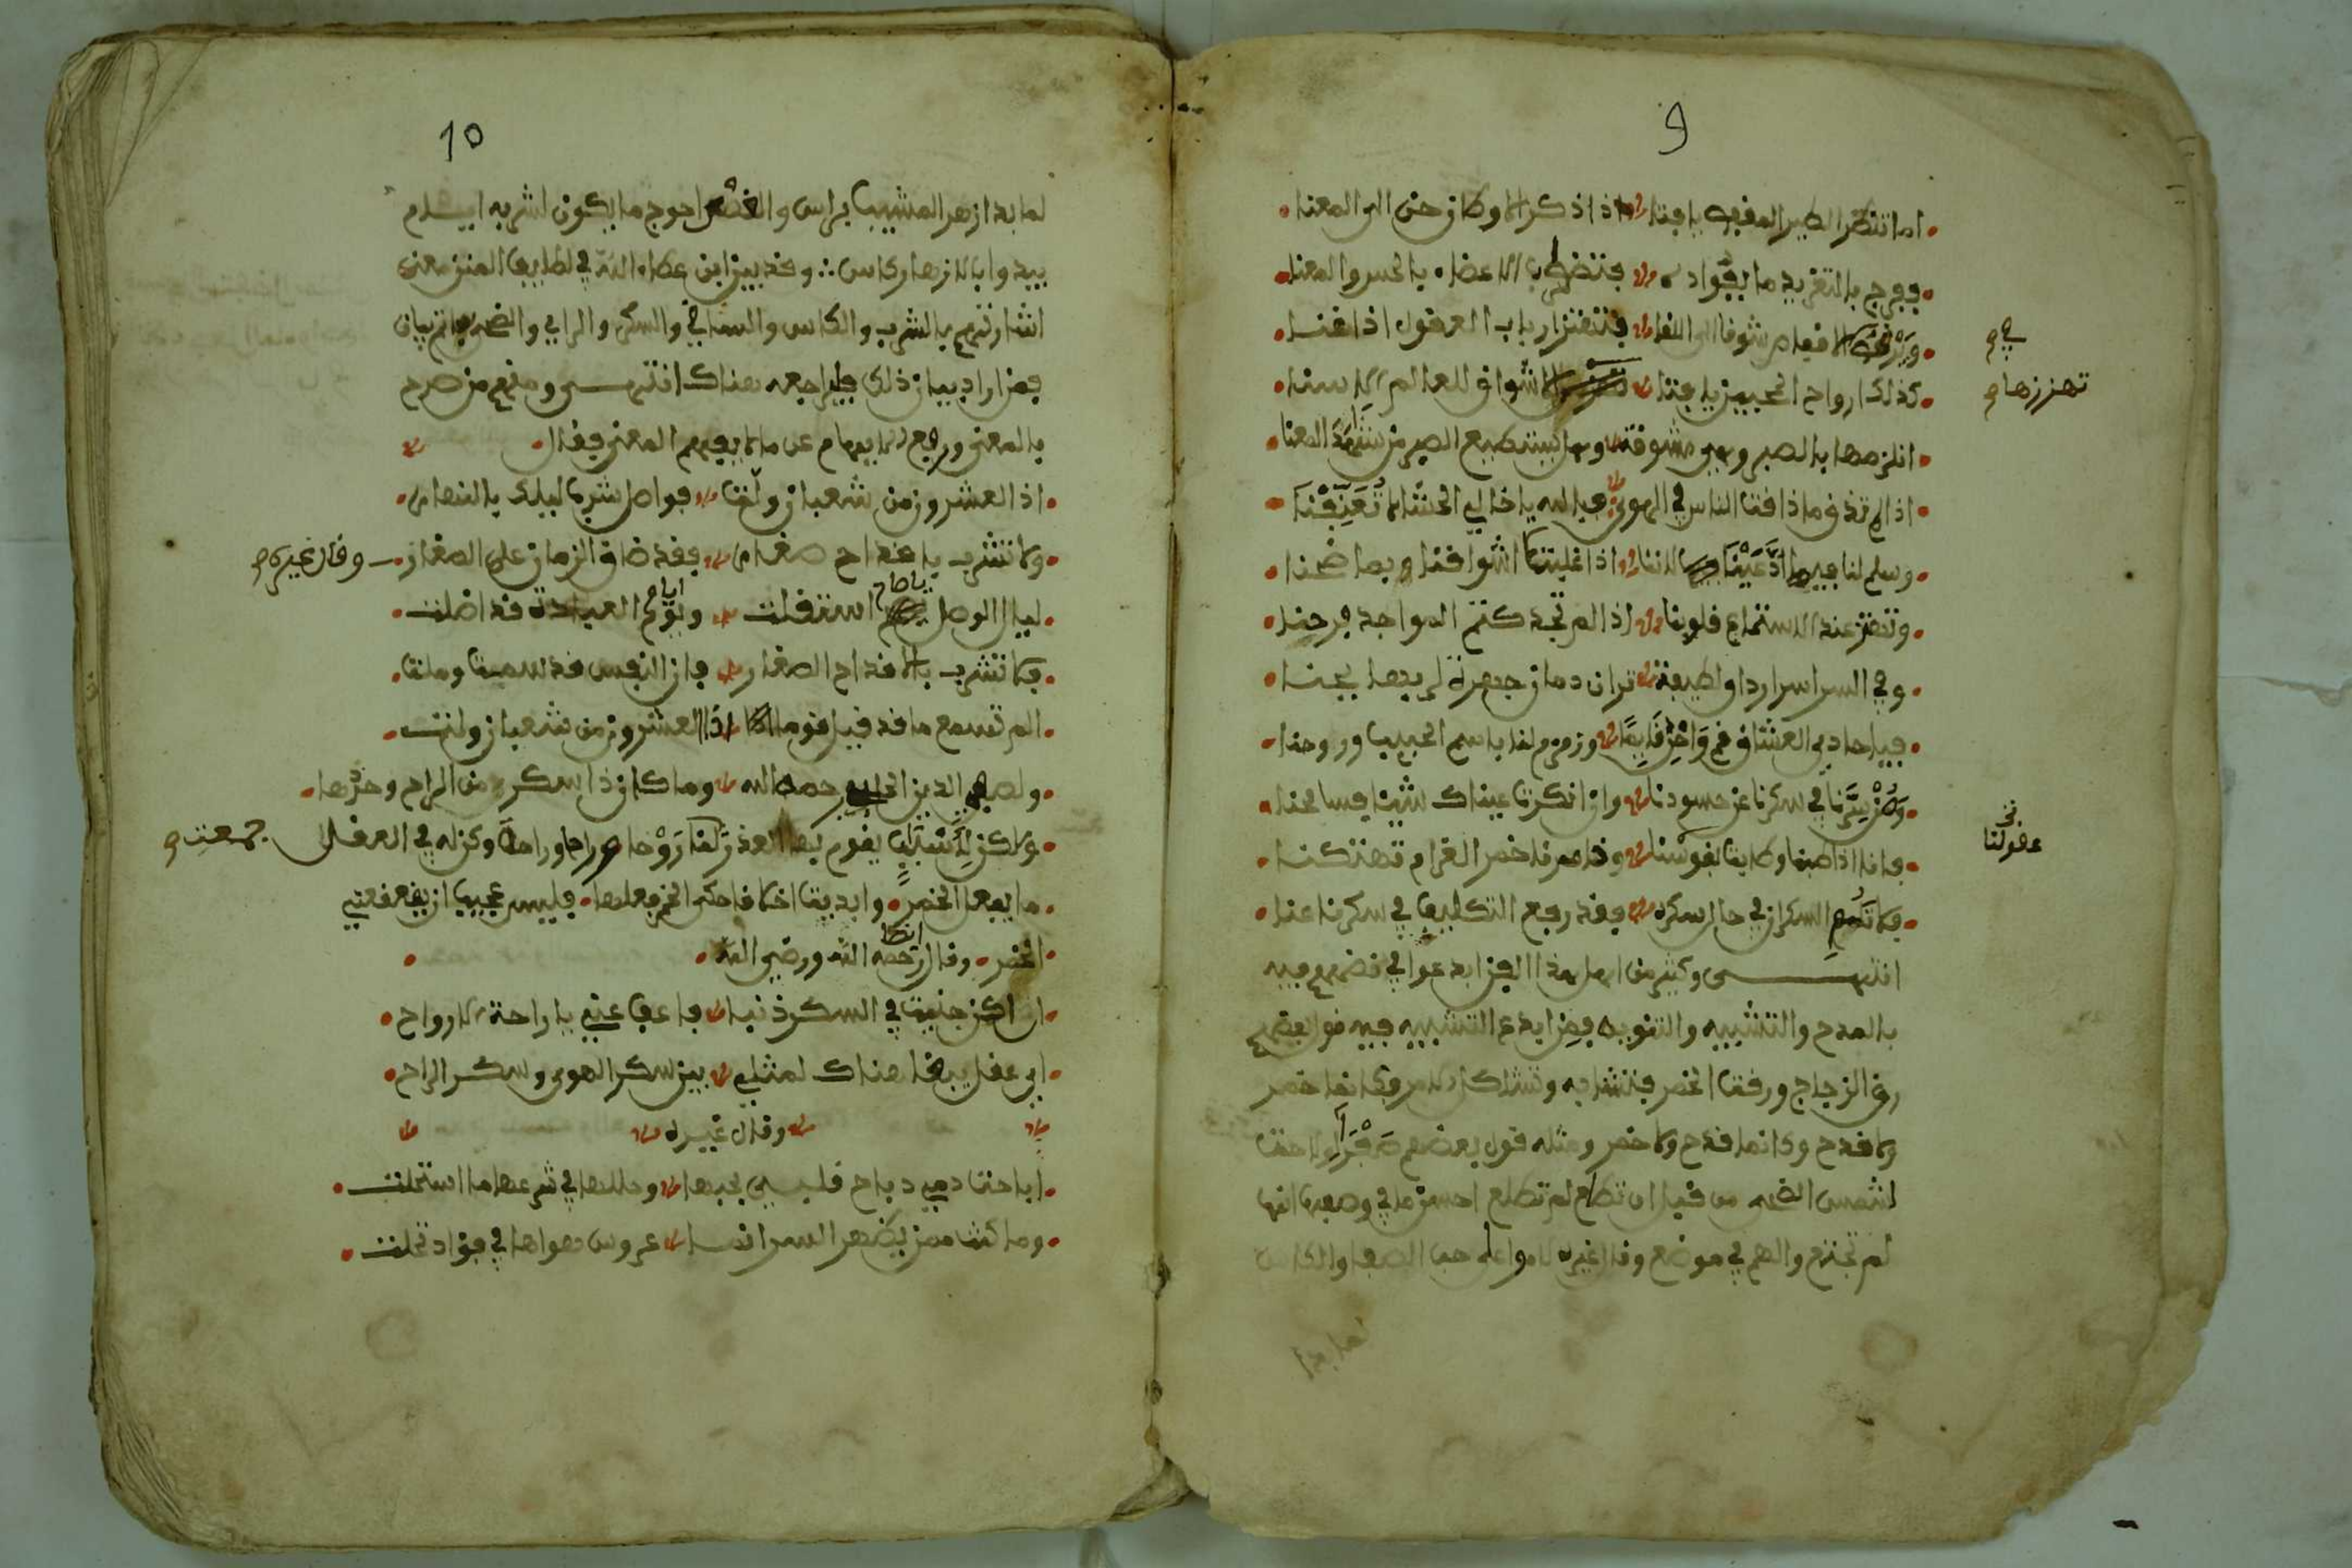 9
اما تنظر الطير المقفص يا فتى اذا ذكر الاوطان حن الى المغنا
ففرج بالتغريد ما بفؤاده فتضطرب الاعضاء بالحس والمعنا
ويرقص في الاقفاص شوقا الى اللقا فتهتز ارباب العقول اذا غنا
صح
كذلك ارواح المحبين يا فتى الاشواق للعالم الاسنا
تهززها صح
انلزمها بالصبر وهي مشوقة وهل يستطيع الصبر من شاهد المعنا
اذا لم تذق ما ذاقت الناس في الهوى فبالله يا خالي الحشا لا تعنفنا
وسلم لنا فيما ادعينا لاننا اذا غلبت اشواقنا ربما صحنا
وتهتز عند الاستماع قلوبنا اذا لم تجد كتم المواجد صرحنا
وفي السر اسرار دقاق لطيفة تراق دمانا جهرة لو بها بحنا
فيا حادي العشاق قم واحد قايما وزمزم لنا باسم الحبيب وروحنا
وصن سرنا في سكرنا عن حسودنا وان انكرت عيناك شيئا فسامحنا
فانا اذا طبنا وطابت نفوسنا وخامرنا خمر الغرام تهتكنا
عقولنا
فلا تلم السكران في حال سكره فقد رفع التكليف في سكرنا عنا
انتهى وكثير من اهل هذا الفن ابدعوا في فيه
بالمدح والتشبيه والتنويه فمن ابدع التشبيه فيه قول بعضهم
رق الزجاج ورقت الخمر فتشابه وتشاكل الامر فكانما خمر
ولا قدح وكانما قدح ولا خمر ومثله قول بعضهم
لشمس الضحى من قبل ان تطلع لم تطلع احسن ما في وصفها انها
لم تجتمع والهم في موضع وقال غيره لاموا على حب الصبا والكاس
لما بدا
10
لما بدا زهر المشيب براس والغصن احوج ما يكون لشربه ايام
يبدوا بالازهار كاس وقد بين ابن عطاء الله في لطايف المنن معنى
اشارتهم بالشرب والكاس والساقي والسكر والري والصحو اتم بيان
فمن اراد بيان ذلك فليراجعه هناك انتهى ومنهم من صرح
بالمعنى ورفع الابهام عن ما لا يفهم المعنى فقال
اذا العشرون من شعبان ولت فواصل شرب ليلك بالنهار
ولا تشرب باقداح صغار فقد ضاق الزمان على الصغار
وقال غيره صح
ليال الوصل يا صاح استقلت وايام العبادة قد اظلت
فلا تشرب بالاقداح الصغار فان النفس قد سمت وملت
الم تسمع ما قد قيل قوما اذا العشرون من شعبان ولت
ولصفي الدين الحلي رحمه الله وما كان ذا سكر من الراح وحدها
ولكن لاسباب يقوم بها العذر روحا وراحا وراحة وكل له في العقل
جمعت صح
ما يفعل الخمر وابديت اخلاقا حكى الخمر فعلها فليس عجيبا ان يفعفعني
الخمر وقال ايضا رحمه الله ورضي الله
ان اكن جنيت في السكر ذنبا فاعف عني يا راحة الارواح
اي عقل يبقى هناك لمثلي بين سكر الهوى وسكر الراح
وقال غيره
اباحت دمي اذ باح قلبي بحبها وحل لها في شرعها ما استحلت
وما كنت ممن يظهر السر انما عروس هواها في فؤاد تجلت